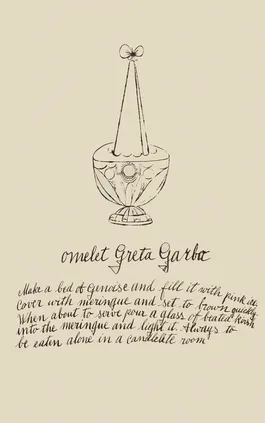 omelet Greta Garbo
Make a bed of Genoise and fill it with pink ice
Cover with meringue and set to brown quickly
When about to serve pour a glass of heated kirsh
into the meringue and light it. Always to
be eatin alone in a candlelite room